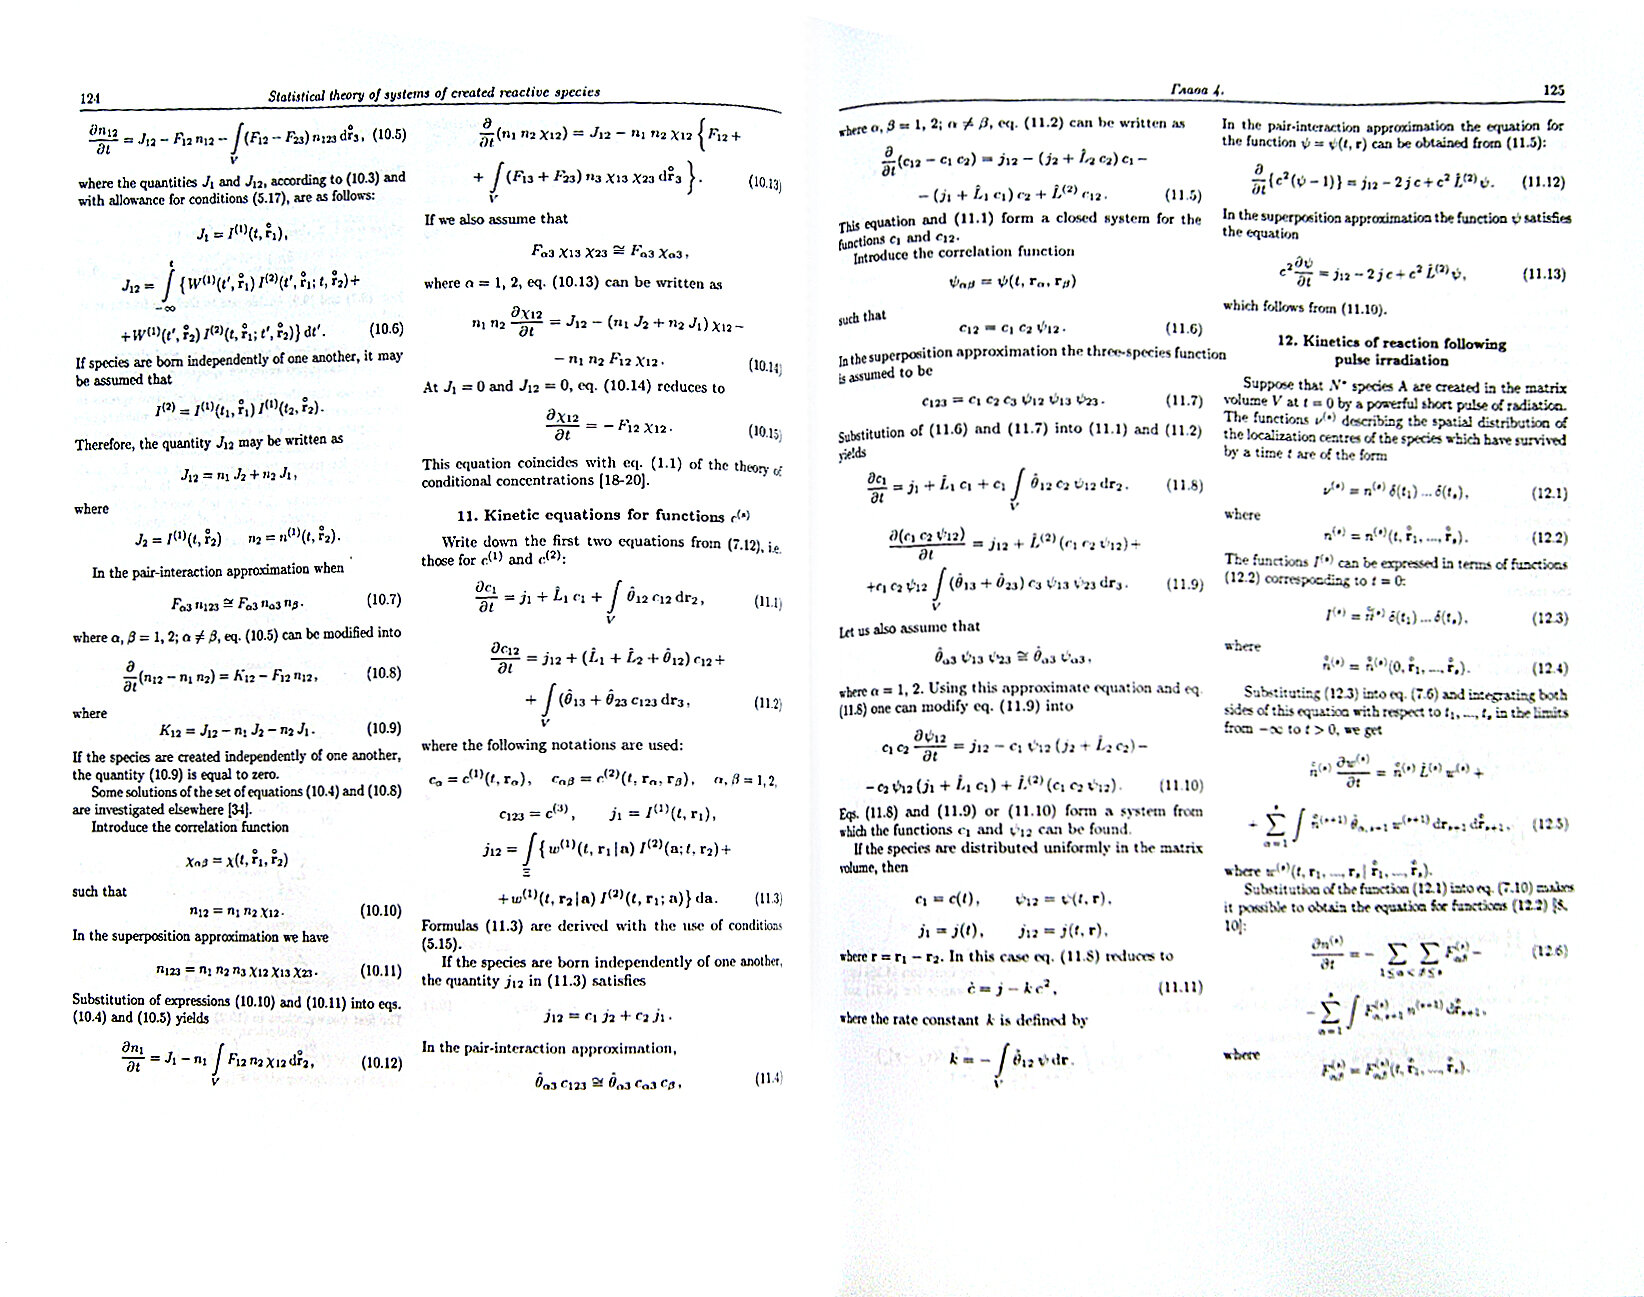 124
Statistical theory of systems of created reactive species
∂n₁₂/∂t = J₁₂ − F₁₂ n₁₂ − ∫_V (F₁₂ − F₂₃) n₁₂₃ dr̊₃, (10.5)
where the quantities J₁ and J₁₂, according to (10.3) and
with allowance for conditions (5.17), are as follows:
J₁ = I⁽¹⁾(t, r̊₁),
J₁₂ = ∫_{−∞}^{t} {W⁽¹⁾(t′, r̊₁) I⁽²⁾(t′, r̊₁; t, r̊₂)+
+W⁽¹⁾(t′, r̊₂) I⁽²⁾(t, r̊₁; t′, r̊₂)} dt′. (10.6)
If species are born independently of one another, it may
be assumed that
I⁽²⁾ = I⁽¹⁾(t₁, r̊₁) I⁽¹⁾(t₂, r̊₂).
Therefore, the quantity J₁₂ may be written as
J₁₂ = n₁ J₂ + n₂ J₁,
where
J₂ = I⁽¹⁾(t, r̊₂) n₂ = n⁽¹⁾(t, r̊₂).
In the pair-interaction approximation when
Fα₃ n₁₂₃ ≅ Fα₃ nα₃ nβ. (10.7)
where α, β = 1, 2; α ≠ β, eq. (10.5) can be modified into
∂/∂t (n₁₂ − n₁ n₂) = K₁₂ − F₁₂ n₁₂, (10.8)
where
K₁₂ = J₁₂ − n₁ J₂ − n₂ J₁. (10.9)
If the species are created independently of one another,
the quantity (10.9) is equal to zero.
Some solutions of the set of equations (10.4) and (10.8)
are investigated elsewhere [34].
Introduce the correlation function
χαβ = χ(t, r̊₁, r̊₂)
such that
n₁₂ = n₁ n₂ χ₁₂. (10.10)
In the superposition approximation we have
n₁₂₃ = n₁ n₂ n₃ χ₁₂ χ₁₃ χ₂₃. (10.11)
Substitution of expressions (10.10) and (10.11) into eqs.
(10.4) and (10.5) yields
∂n₁/∂t = J₁ − n₁ ∫_V F₁₂ n₂ χ₁₂ dr̊₂, (10.12)
∂/∂t (n₁ n₂ χ₁₂) = J₁₂ − n₁ n₂ χ₁₂ {F₁₂ +
+ ∫_V (F₁₃ + F₂₃) n₃ χ₁₃ χ₂₃ dr̊₃}. (10.13)
If we also assume that
Fα₃ χ₁₃ χ₂₃ ≅ Fα₃ χα₃,
where α = 1, 2, eq. (10.13) can be written as
n₁ n₂ ∂χ₁₂/∂t = J₁₂ − (n₁ J₂ + n₂ J₁) χ₁₂ −
− n₁ n₂ F₁₂ χ₁₂. (10.14)
At J₁ = 0 and J₁₂ = 0, eq. (10.14) reduces to
∂χ₁₂/∂t = − F₁₂ χ₁₂. (10.15)
This equation coincides with eq. (1.1) of the theory of
conditional concentrations [18-20].
11. Kinetic equations for functions c⁽ˢ⁾
Write down the first two equations from (7.12), i.e.
those for c⁽¹⁾ and c⁽²⁾:
∂c₁/∂t = j₁ + L̂₁ c₁ + ∫_V θ̂₁₂ c₁₂ dr₂, (11.1)
∂c₁₂/∂t = j₁₂ + (L̂₁ + L̂₂ + θ̂₁₂) c₁₂ +
+ ∫_V (θ̂₁₃ + θ̂₂₃ c₁₂₃ dr₃, (11.2)
where the following notations are used:
cα = c⁽¹⁾(t, rα), cαβ = c⁽²⁾(t, rα, rβ), α, β = 1, 2,
c₁₂₃ = c⁽³⁾, j₁ = I⁽¹⁾(t, r₁),
j₁₂ = ∫_Ξ {w⁽¹⁾(t, r₁|a) I⁽²⁾(a; t, r₂)+
+w⁽¹⁾(t, r₂|a) I⁽²⁾(t, r₁; a)} da. (11.3)
Formulas (11.3) are derived with the use of conditions
(5.15).
If the species are born independently of one another,
the quantity j₁₂ in (11.3) satisfies
j₁₂ = c₁ j₂ + c₂ j₁.
In the pair-interaction approximation,
θ̂α₃ c₁₂₃ ≅ θ̂α₃ cα₃ cβ, (11.4)
Глава 4.
125
where α, β = 1, 2; α ≠ β, eq. (11.2) can be written as
∂/∂t (c₁₂ − c₁ c₂) = j₁₂ − (j₂ + L̂₂ c₂) c₁ −
− (j₁ + L̂₁ c₁) c₂ + L̂⁽²⁾ c₁₂. (11.5)
This equation and (11.1) form a closed system for the
functions c₁ and c₁₂.
Introduce the correlation function
ψαβ = ψ(t, rα, rβ)
such that
c₁₂ = c₁ c₂ ψ₁₂. (11.6)
In the superposition approximation the three-species function
is assumed to be
c₁₂₃ = c₁ c₂ c₃ ψ₁₂ ψ₁₃ ψ₂₃. (11.7)
Substitution of (11.6) and (11.7) into (11.1) and (11.2)
yields
∂c₁/∂t = j₁ + L̂₁ c₁ + c₁ ∫_V θ̂₁₂ c₂ ψ₁₂ dr₂. (11.8)
∂(c₁ c₂ ψ₁₂)/∂t = j₁₂ + L̂⁽²⁾ (c₁ c₂ ψ₁₂)+
+c₁ c₂ ψ₁₂ ∫_V (θ̂₁₃ + θ̂₂₃) c₃ ψ₁₃ ψ₂₃ dr₃. (11.9)
Let us also assume that
θ̂α₃ ψ₁₃ ψ₂₃ ≅ θ̂α₃ ψα₃,
where α = 1, 2. Using this approximate equation and eq.
(11.8) one can modify eq. (11.9) into
c₁ c₂ ∂ψ₁₂/∂t = j₁₂ − c₁ ψ₁₂ (j₂ + L̂₂ c₂)−
− c₂ ψ₁₂ (j₁ + L̂₁ c₁) + L̂⁽²⁾ (c₁ c₂ ψ₁₂). (11.10)
Eqs. (11.8) and (11.9) or (11.10) form a system from
which the functions c₁ and ψ₁₂ can be found.
If the species are distributed uniformly in the matrix
volume, then
c₁ = c(t), ψ₁₂ = ψ(t, r),
j₁ = j(t), j₁₂ = j(t, r),
where r = r₁ − r₂. In this case eq. (11.8) reduces to
ċ = j − k c², (11.11)
where the rate constant k is defined by
k = − ∫_V θ̂₁₂ ψ dr.
In the pair-interaction approximation the equation for
the function ψ = ψ(t, r) can be obtained from (11.5):
∂/∂t {c²(ψ − 1)} = j₁₂ − 2 j c + c² L̂⁽²⁾ ψ. (11.12)
In the superposition approximation the function ψ satisfies
the equation
c² ∂ψ/∂t = j₁₂ − 2 j c + c² L̂⁽²⁾ ψ, (11.13)
which follows from (11.10).
12. Kinetics of reaction following
pulse irradiation
Suppose that N° species A are created in the matrix
volume V at t = 0 by a powerful short pulse of radiation.
The functions ν⁽ˢ⁾ describing the spatial distribution of
the localization centres of the species which have survived
by a time t are of the form
ν⁽ˢ⁾ = n⁽ˢ⁾ δ(t₁) ... δ(tₛ), (12.1)
where
n⁽ˢ⁾ = n⁽ˢ⁾(t, r̊₁, ..., r̊ₛ). (12.2)
The functions I⁽ˢ⁾ can be expressed in terms of functions
(12.2) corresponding to t = 0:
I⁽ˢ⁾ = n̊⁽ˢ⁾ δ(t₁) ... δ(tₛ), (12.3)
where
n̊⁽ˢ⁾ = n̊⁽ˢ⁾(0, r̊₁, ..., r̊ₛ). (12.4)
Substituting (12.3) into eq. (7.6) and integrating both
sides of this equation with respect to t₁, ..., tₛ in the limits
from −∞ to t > 0, we get
n̊⁽ˢ⁾ ∂w⁽ˢ⁾/∂t = n̊⁽ˢ⁾ L̂⁽ˢ⁾ w⁽ˢ⁾ +
+ Σ_{α=1}^{s} ∫ n̊⁽ˢ⁺¹⁾ θ̂α,ₛ₊₁ w⁽ˢ⁺¹⁾ drₛ₊₁ dr̊ₛ₊₁, (12.5)
where w⁽ˢ⁾(t, r₁, ..., rₛ | r̊₁, ..., r̊ₛ).
Substitution of the function (12.1) into eq. (7.10) makes
it possible to obtain the equation for functions (12.2) [8,
10]:
∂n⁽ˢ⁾/∂t = − Σ Σ_{1≤α<β≤s} F⁽ˢ⁾αβ − (12.6)
− Σ_{α=1}^{s} ∫ F⁽ˢ⁾α,ₛ₊₁ n⁽ˢ⁺¹⁾ dr̊ₛ₊₁,
where
F⁽ˢ⁾αβ = F⁽ˢ⁾αβ(t, r̊₁, ..., r̊ₛ).